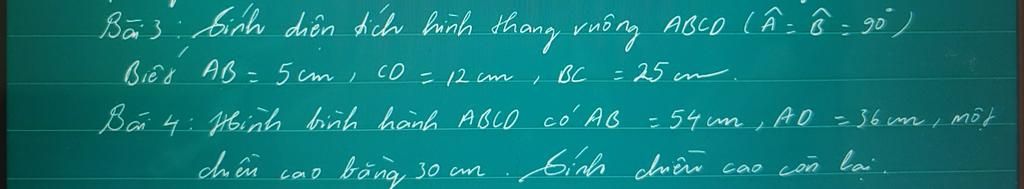 Bài 3 : Tính diện tích hình thang vuông ABCD ( Â = B̂ = 90° )
Biết AB = 5 cm , CD = 12 cm , BC = 25 cm .
Bài 4 : Hình bình hành ABCD có AB = 54 cm , AD = 36 cm , một
chiều cao bằng 30 cm . Tính chiều cao còn lại .